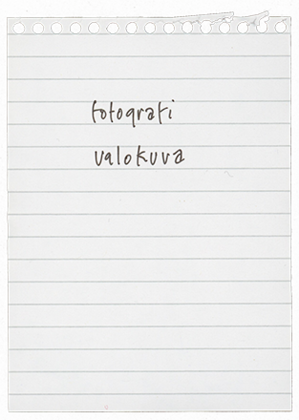 fotografi
valokuva